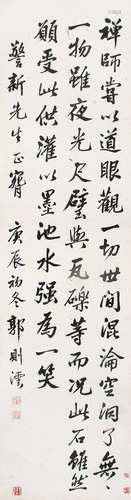 禪師嘗以道眼觀一切世間混淪空洞了無
一物雖夜光尺璧與瓦礫等而況此石雖然
願受此供灌以墨池水强為一笑
警新先生正 庚辰初冬郭則澐